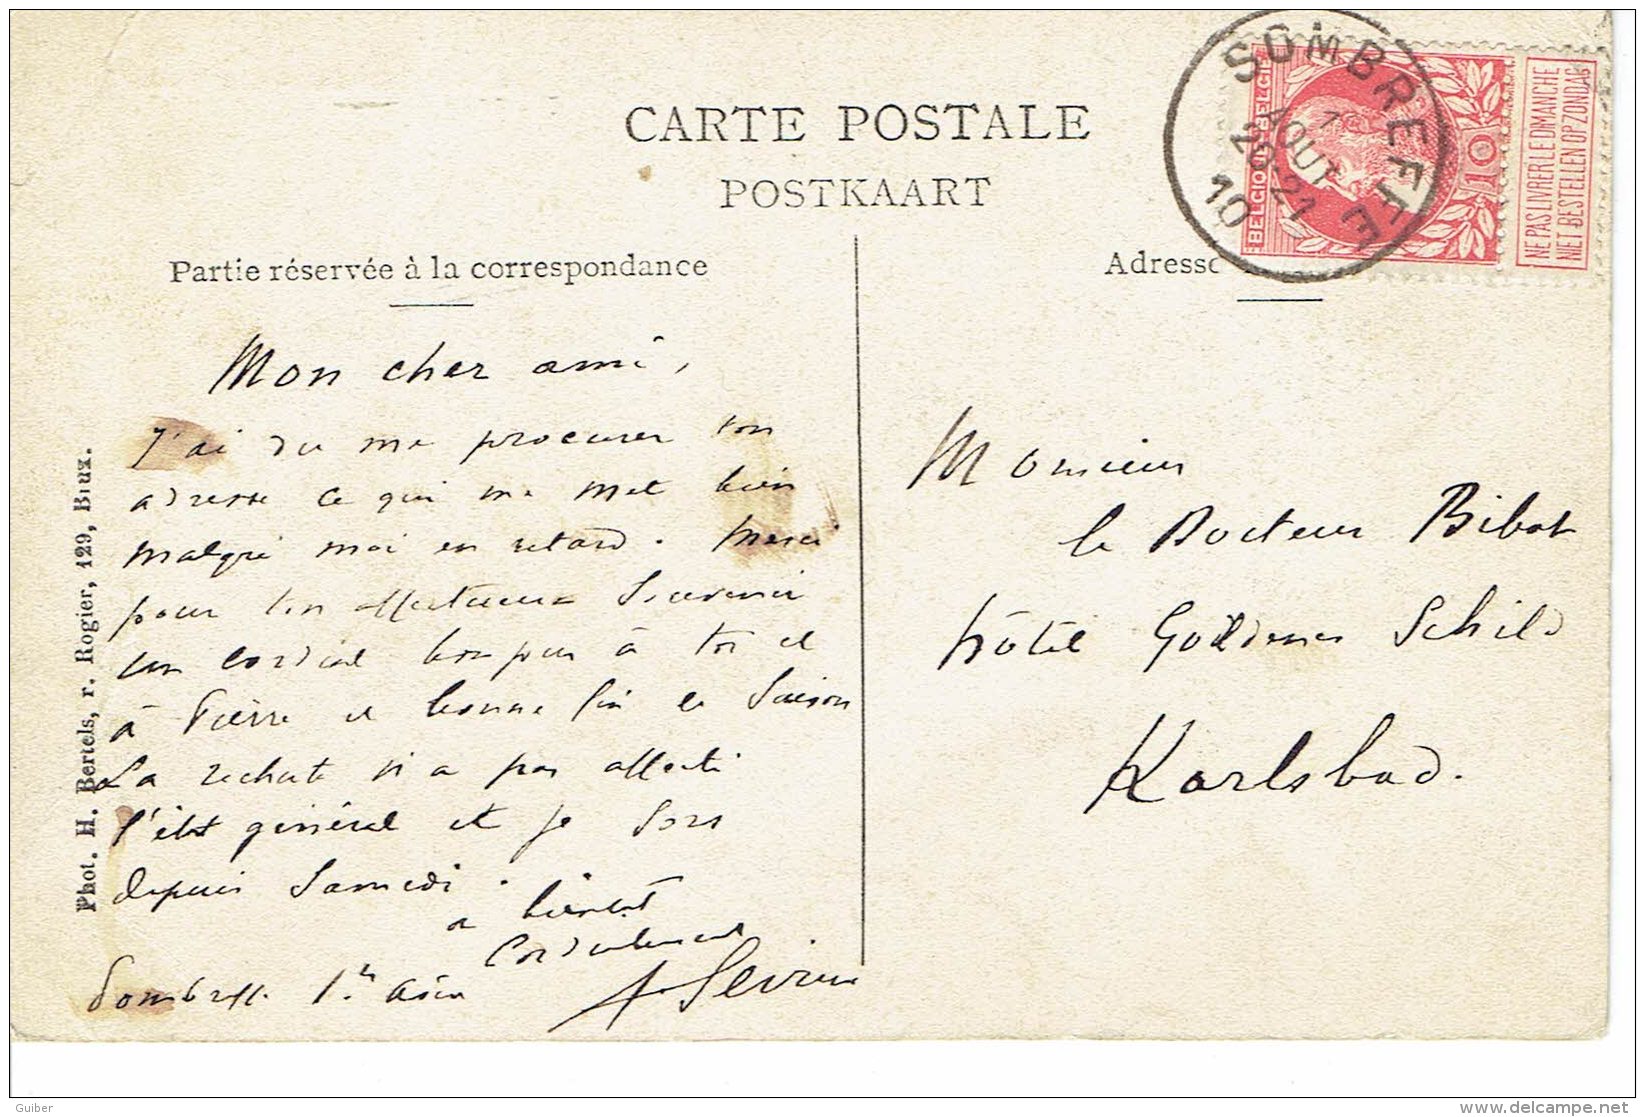 CARTE POSTALE
POSTKAART
SOMBREFFE
1
AOUT
20-21
10
BELGIQUE BELGIË
10
NE PAS LIVRER LE DIMANCHE
NIET BESTELLEN OP ZONDAG
Partie réservée à la correspondance
Mon cher ami,
J'ai du me procurer ton
adresse ce qui me met bien
malgré moi en retard. Merci
pour ton affectueux Souvenir
un cordial bonjour à toi et
à Pierre et bonne fin de Saison
La rechute n'a pas affecté
l'état général et je Sors
depuis Samedi.
a bientôt
Cordialement
Sombreffe 1er Août
Sevrin
Adresse
Monsieur
le Docteur Bibot
hôtel Goldenes Schild
Karlsbad.
Phot. H. Bertels, r. Rogier, 129, Brux.
Guiber
delcampe.net